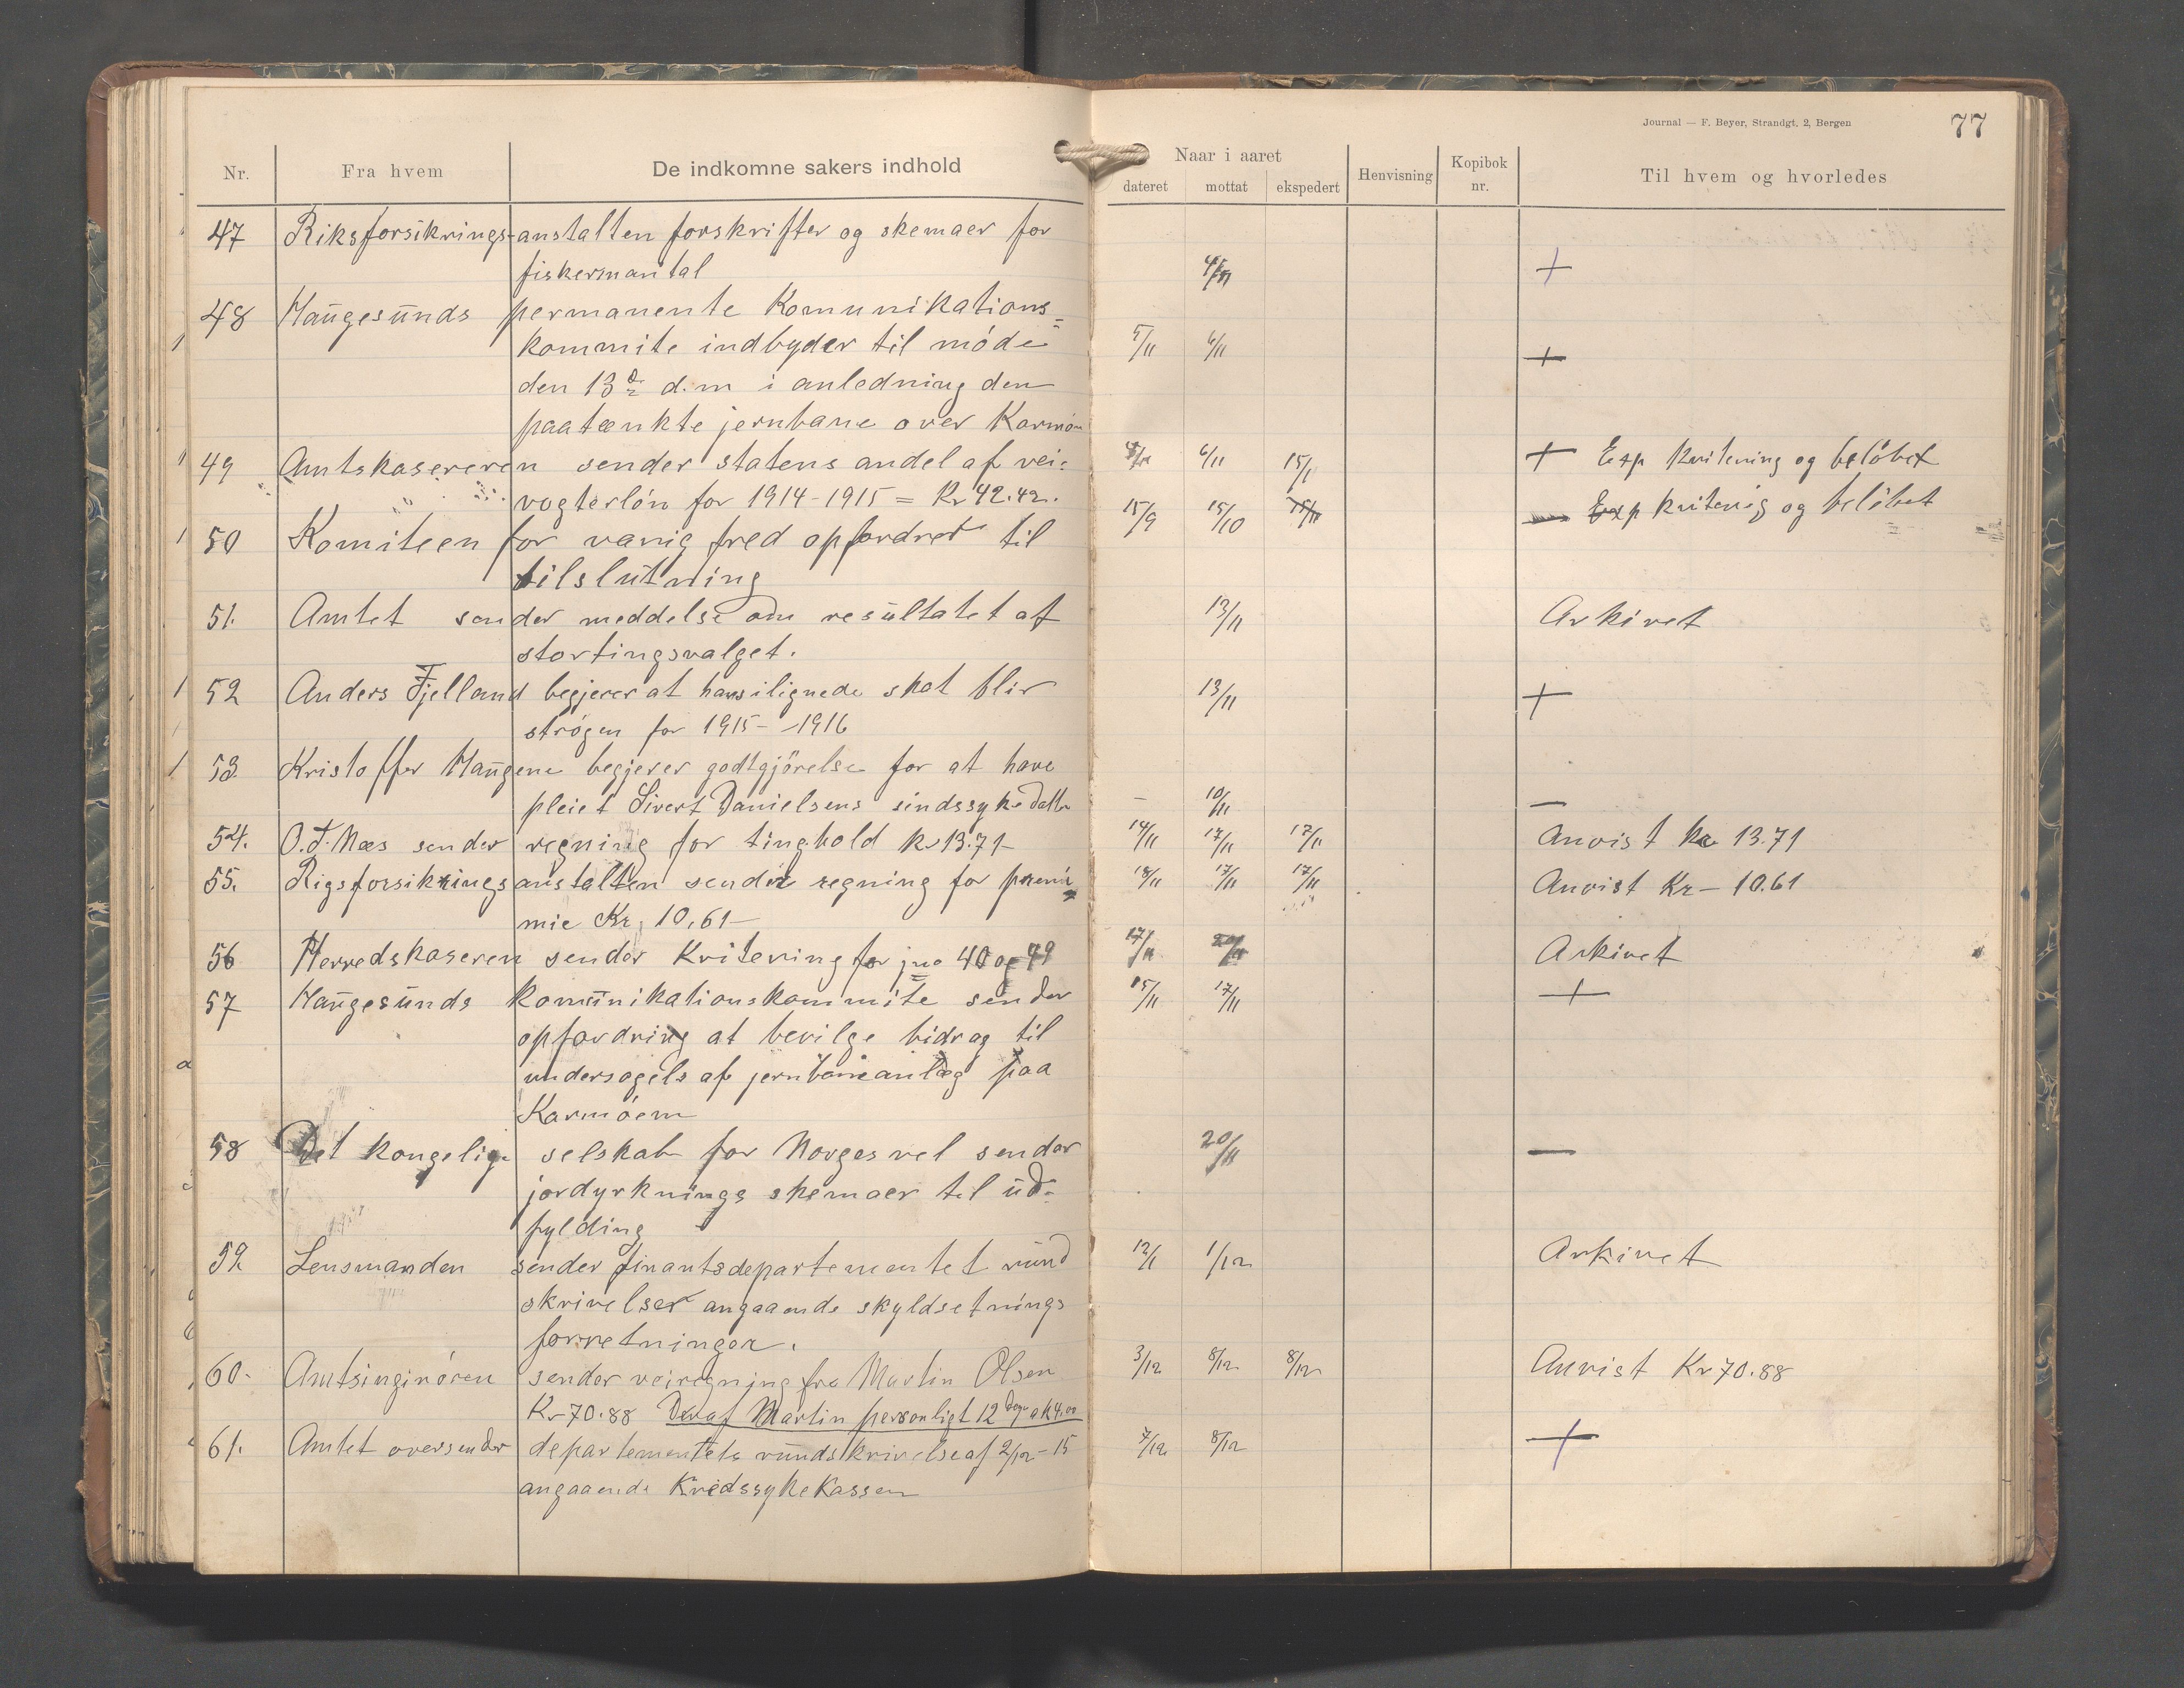 Journal — F. Beyer, Strandgt. 2, Bergen
77
Nr. Fra hvem De indkomne sakers indhold Naar i aaret Henvisning Kopibok nr. Til hvem og hvorledes
dateret mottat ekspedert
47 Riksforsikrings-anstalten forskrifter og skemaer for
fiskermantal +
48 Haugesunds permanente Komunikations=
kommite indbyder til møde 5/11 6/11 +
den 13de d.m i anledning den
paatænkte jernbane over Karmøn
49 Amtskasereren sender statens andel af vei= 6/11 15/1 + Exp kvitering og beløbet
vogterløn for 1914-1915 = Kr 42.42.
50 Komiteen for varig fred opfordrer til 15/9 15/10 — Exp kvitering og beløbet
tilslutning
51. Amtet sender meddelse om resultatet af 13/11 Arkivet
stortingsvalget.
52 Anders Fjelland begjerer at hans ilignede skat blir 13/11 +
strøgen for 1915-1916
53 Kristoffer Haugene begjerer godtgjørelse for at have
pleiet Sivert Danielsens sindssyke datter — 10/11 —
54. O.F. Næs sender regning for tinghold Kr 13.71 14/11 17/11 17/11 Anvist kr 13.71
55. Rigsforsikringsanstalten sender regning for præmi= 18/11 17/11 17/11 Anvist Kr — 10.61
mie Kr. 10,61 —
56 Herredskaseren sender kvitering for jno 40 og 49 17/11 Arkivet
57 Haugesunds komunikationskommite sender 15/11 17/11 +
opfordring at bevilge bidrag til
undersøgels af jernbaneanlæg paa
Karmøen
58 Det kongelige selskab for Norges vel sender 20/11 —
jordyrknings skemaer til ud=
fylding
59. Lensmanden sender finantsdepartementet rund 12/1 1/12 Arkivet
skrivelser angaaende skyldsetnings
forretninger.
60. Amtsinginøren sender veiregning fra Martin Olsen 3/12 8/12 8/12 Anvist Kr 70.88
Kr 70.88 Deraf Martin personligt 12 dage a k 4.00
61. Amtet oversender departementets rundskrivelse af 2/12-15 7/12 8/12 +
angaaende Kredssykekassen